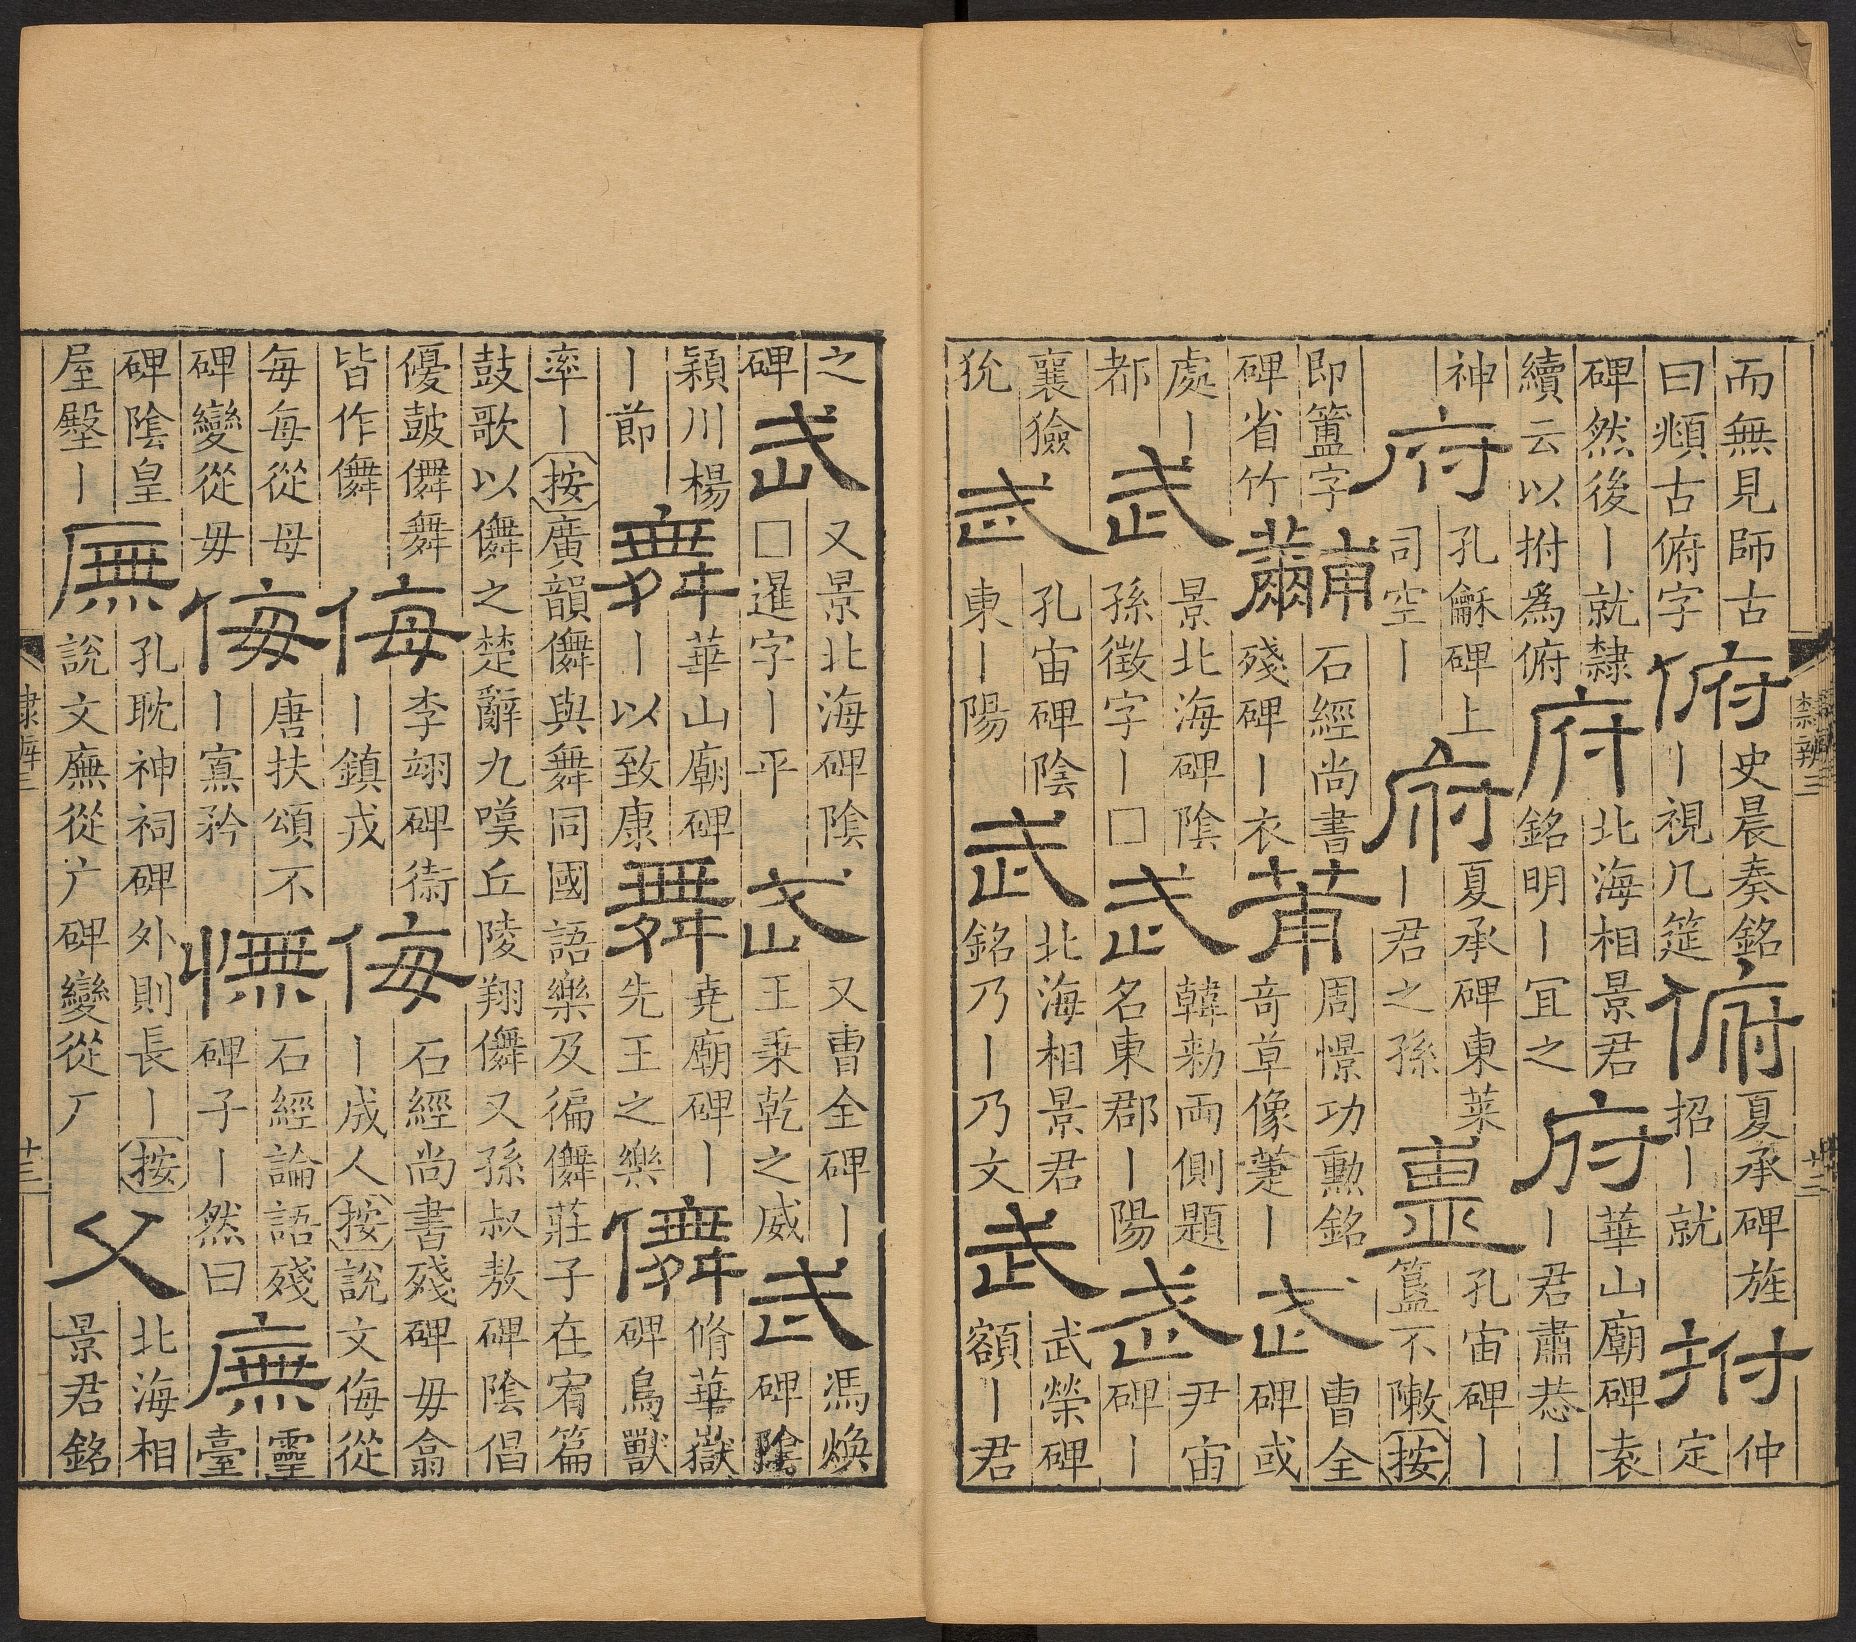 而無見師古
曰頫古俯字
俯
史晨奏銘
丨視几筵
俯
夏承碑旌
招丨就
拊
仲
定
碑然後丨就隸
續云以拊爲俯
府
北海相景君
銘明丨冝之
府
華山廟碑袁
丨君肅恭丨
神
府
孔龢碑上
司空丨
府
夏承碑東萊
丨君之孫
孔宙碑丨
簋不敶按
即簠字
碑省竹
黼
石經尚書
殘碑丨衣
莆
周憬功勲銘
竒草像萐丨
武
曹全
碑或
處丨
都
武
景北海碑陰
孫徵字丨□
武
韓勑兩側題
名東郡丨陽
武
尹宙
碑丨
襄獫
狁
武
孔宙碑陰
東丨陽
武
北海相景君
銘乃丨乃文
武
武榮碑
額丨君
隸辨三
之
碑
武
又景北海碑陰
□暹字丨平
武
又曹全碑丨
王秉乾之威
武
馮煥
碑陰
潁川楊
丨節
舞
華山廟碑
丨以致康
舞
堯廟碑丨
先王之樂
儛
脩華嶽
碑鳥獸
率丨按廣韻儛與舞同國語樂及徧儛莊子在宥篇
鼓歌以儛之楚辭九嘆丘陵翔儛又孫叔敖碑陰倡
優鼓儛舞
皆作儛
侮
李翊碑衞
丨鎮戎
侮
石經尚書殘碑毋翕
丨成人按說文侮從
每每從母
碑變從毋
侮
唐扶頌不
丨寡矜
憮
石經論語殘
碑子丨然曰
廡
靈
臺
碑陰皇
屋殿丨
廡
孔耽神祠碑外則長丨按
說文廡從广碑變從厂
父
北海相
景君銘